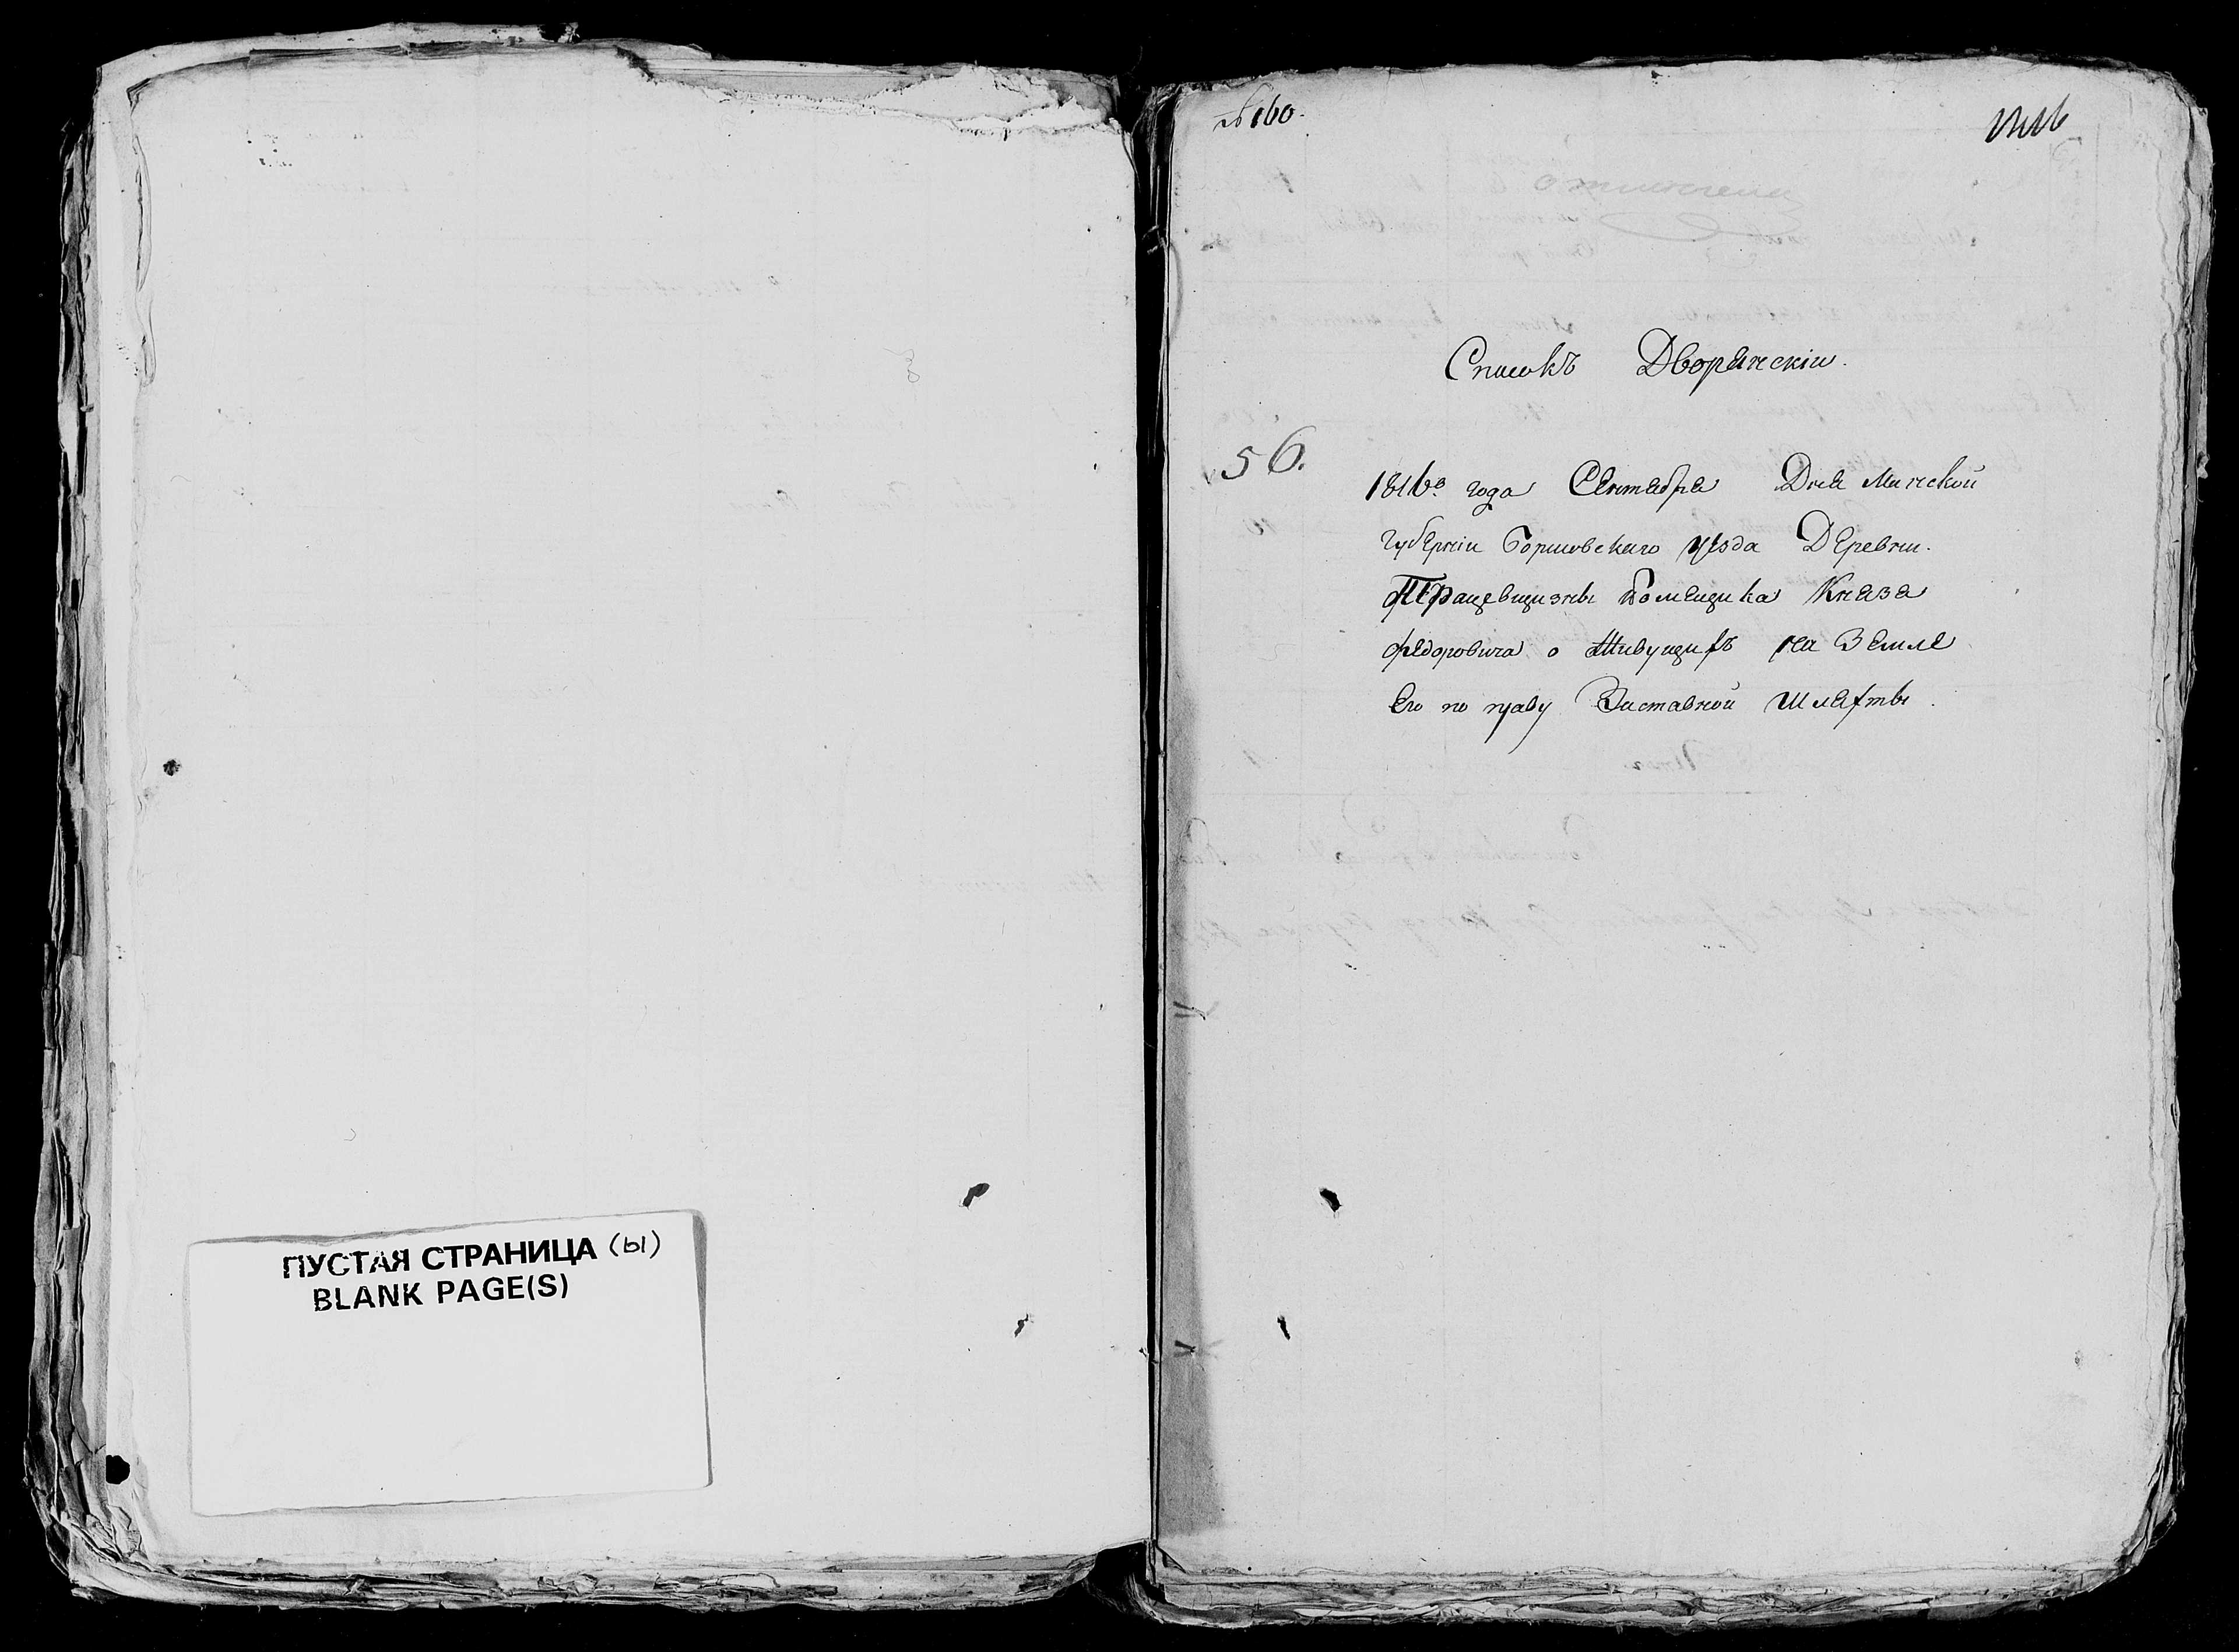 ПУСТАЯ СТРАНИЦА (ы)
BLANK PAGE(S)
№ 160.
Списокъ Дворянскіи.
56.
1816го года Сентября Дня Минской
губерніи Борисовскаго уѣзда Деревни.
помещика Князя
федоровича о Живущихъ на Земле
Его по праву Заставной Шляхты.